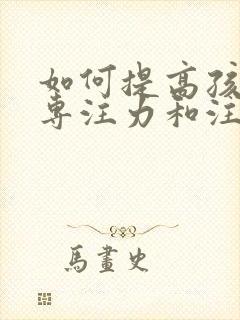 如何提高孩
专注力和注
馬畫史